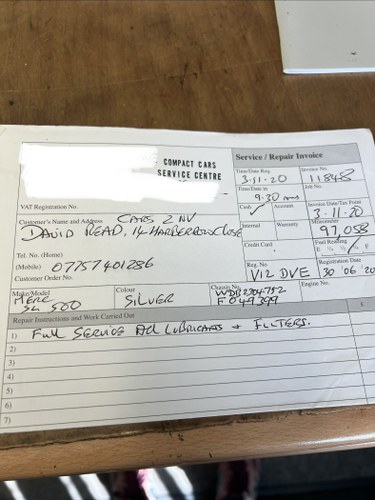 COMPACT CARS
SERVICE CENTRE
Service / Repair Invoice
Time/Date Reg.
3-11-20
Invoice No.
11848
Time/Date in
9.30 am
Job No.
VAT Registration No.
Cash ✓
Account
Invoice Date/Tax Point
3-11-20
Customer's Name and Address
CARS 2 NV
DAVID READ, 14 HARBERROWS CLOSE
Internal
Warranty
97,058
Credit Card
Fuel Reading
E ¼ ½ ¾ F
Tel. No. (Home)
(Mobile) 07757401286
Customer Order No.
Reg. No
V12 DVE
Registration Date
30 06 20
Make/Model
MERC
SL 500
Colour
SILVER
Chassis No.
WDB2304752
F049399
Engine No.
Repair Instructions and Work Carried Out
£
1) FULL SERVICE All LUBRICANTS + FILTERS.
2)
3)
4)
5)
6)
7)